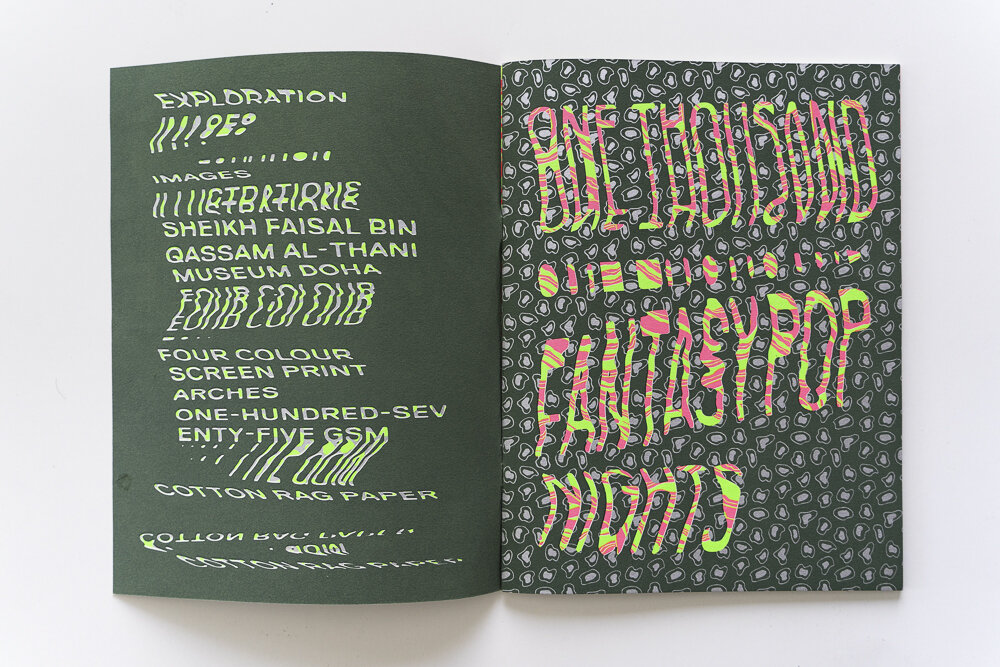 EXPLORATION
IMAGES
SHEIKH FAISAL BIN
QASSAM AL-THANI
MUSEUM DOHA
FOUR COLOUR
FOUR COLOUR
SCREEN PRINT
ARCHES
ONE-HUNDRED-SEV
ENTY-FIVE GSM
COTTON RAG PAPER
COTTON RAG PAPER
COTTON RAG PAPER
ONE THOUSAND
FANTASYPOP
NIGHTS